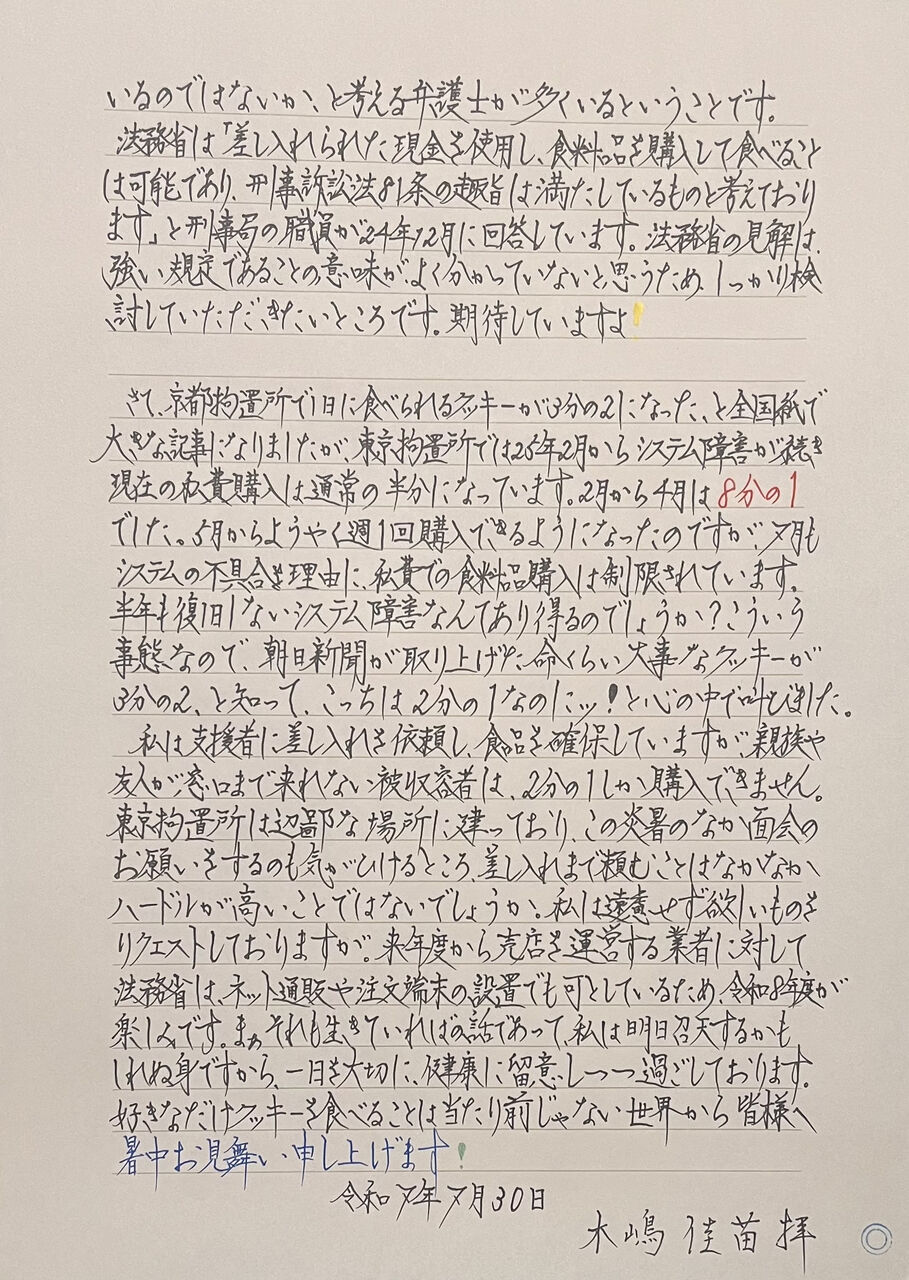 いるのではないか、と考える弁護士が多くいるということです。
法務省は「差し入れられた現金を使用し、食料品を購入して食べること
は可能であり、刑事訴訟法81条の趣旨は満たしているものと考えており
ます」と刑事局の職員が24年12月に回答しています。法務省の見解は、
強い規定であることの意味がよく分かっていないと思うため、しっかり検
討していただきたいところです。期待していますよ!
さて、京都拘置所で1日に食べられるクッキーが3分の2になった、と全国紙で
大きな記事になりましたが、東京拘置所では25年2月からシステム障害が続き
現在の私費購入は通常の半分になっています。2月から4月は8分の1
でした。5月からようやく週1回購入できるようになったのですが、7月も
システムの不具合を理由に、私費での食料品購入は制限されています。
半年も復旧しないシステム障害なんてあり得るのでしょうか?こういう
事態なので、朝日新聞が取り上げた命くらい大事なクッキーが
3分の2、と知って、こっちは2分の1なのにッ!と心の中で叫びました。
私は支援者に差し入れを依頼し、食品を確保していますが、親族や
友人が窓口まで来れない被収容者は、2分の1しか購入できません。
東京拘置所は辺鄙な場所に建っており、この炎暑のなか面会の
お願いをするのも気がひけるところ、差し入れまで頼むことはなかなか
ハードルが高いことではないでしょうか。私は遠慮せず欲しいものを
リクエストしておりますが。来年度から売店を運営する業者に対して
法務省は、ネット通販や注文端末の設置でも可としているため、令和8年度が
楽しみです。まぁそれも生きていればの話であって、私は明日召天するかも
しれぬ身ですから、一日を大切に、健康に留意しつつ過ごしております。
好きなだけクッキーを食べることは当たり前じゃない世界から皆様へ
暑中お見舞い申し上げます!
令和7年7月30日
木嶋佳苗拝